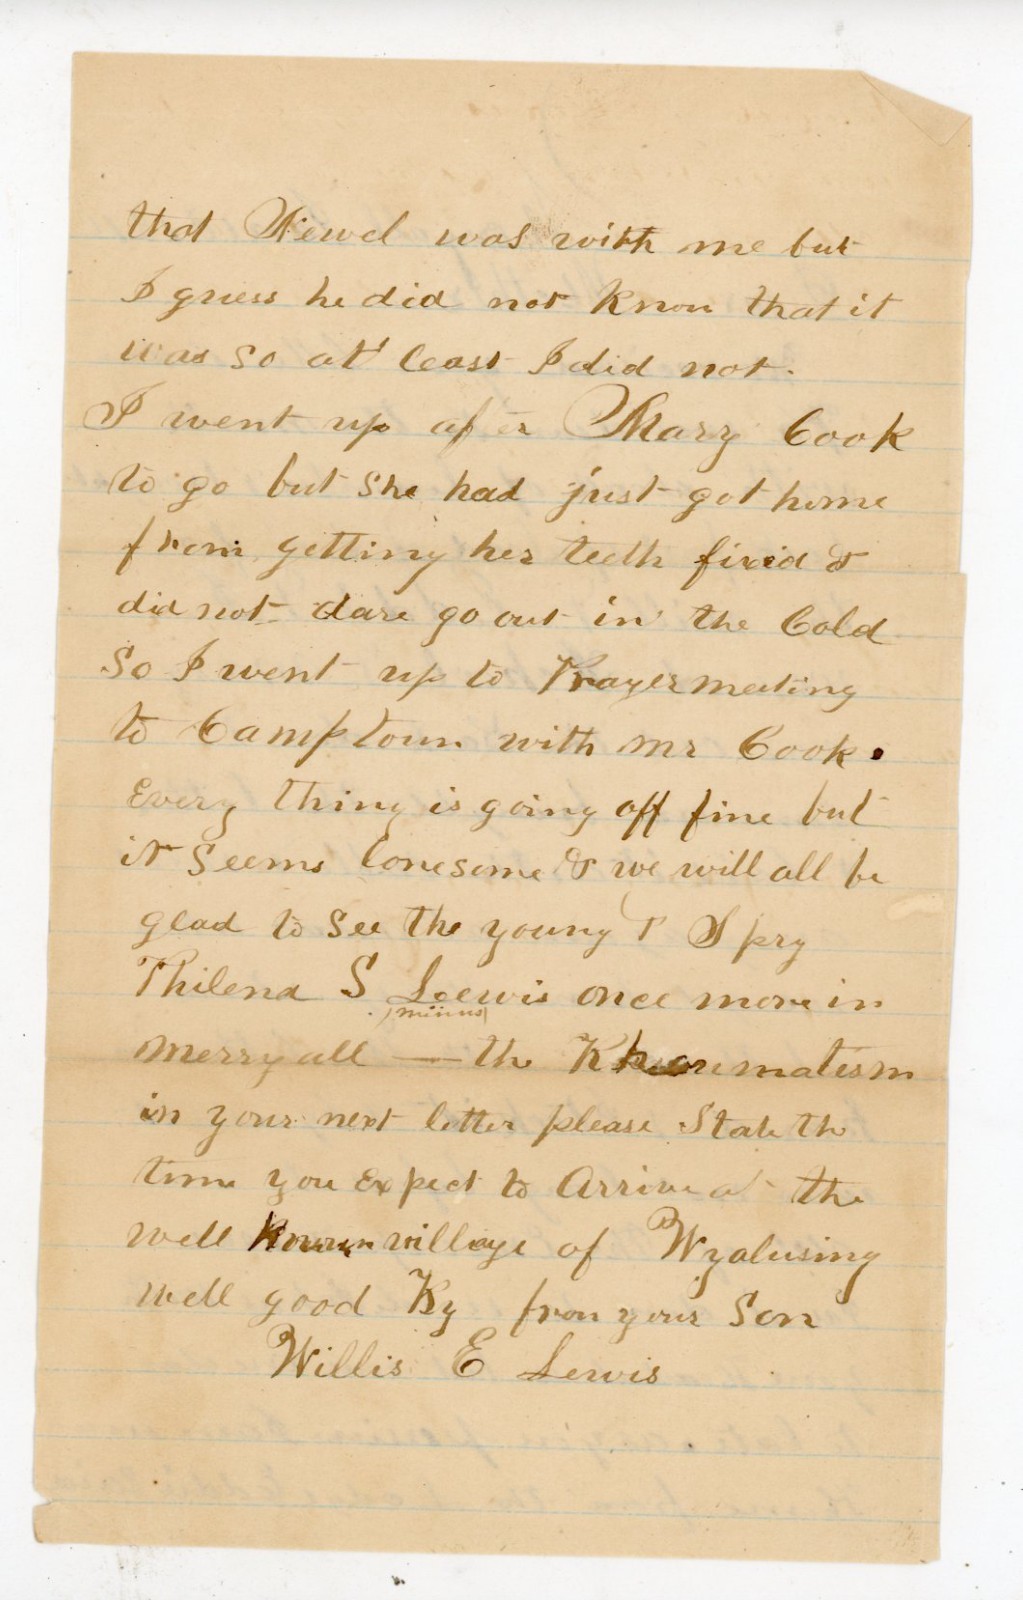 that Newel was with me but
I guess he did not know that it
was so at least I did not.
I went up after Mary Cook
to go but she had just got home
from getting her teeth fixed &
did not dare go out in the Cold
So I went up to Prayer meeting
to Camptown with Mr Cook.
Every thing is going off fine but
it seems lonesome & we will all be
glad to see the young & Spry
Philena S Loewis once more in
(minus)
Merryall — the Rheumatism
in your next letter please State the
time you Expect to Arrive at the
well Known village of Wyalusing
well good By from your Son
Willis E Lewis